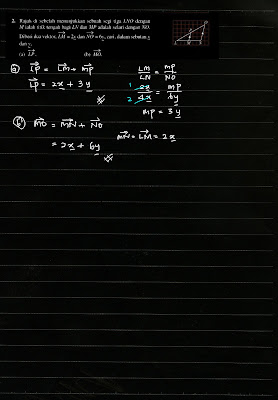 2. Rajah di sebelah menunjukkan sebuah segi tiga LNO dengan
M ialah titik tengah bagi LN dan MP adalah selari dengan NO.
Diberi dua vektor, LM = 2x dan NO = 6y, cari, dalam sebutan x
dan y,
(a) LP, (b) MO.
(a) LP = LM + MP
LP = 2x + 3y
LM/LN = MP/NO
1 2x/4x 2 = MP/6y
MP = 3y
(b) MO = MN + NO
= 2x + 6y
MN = LM = 2x